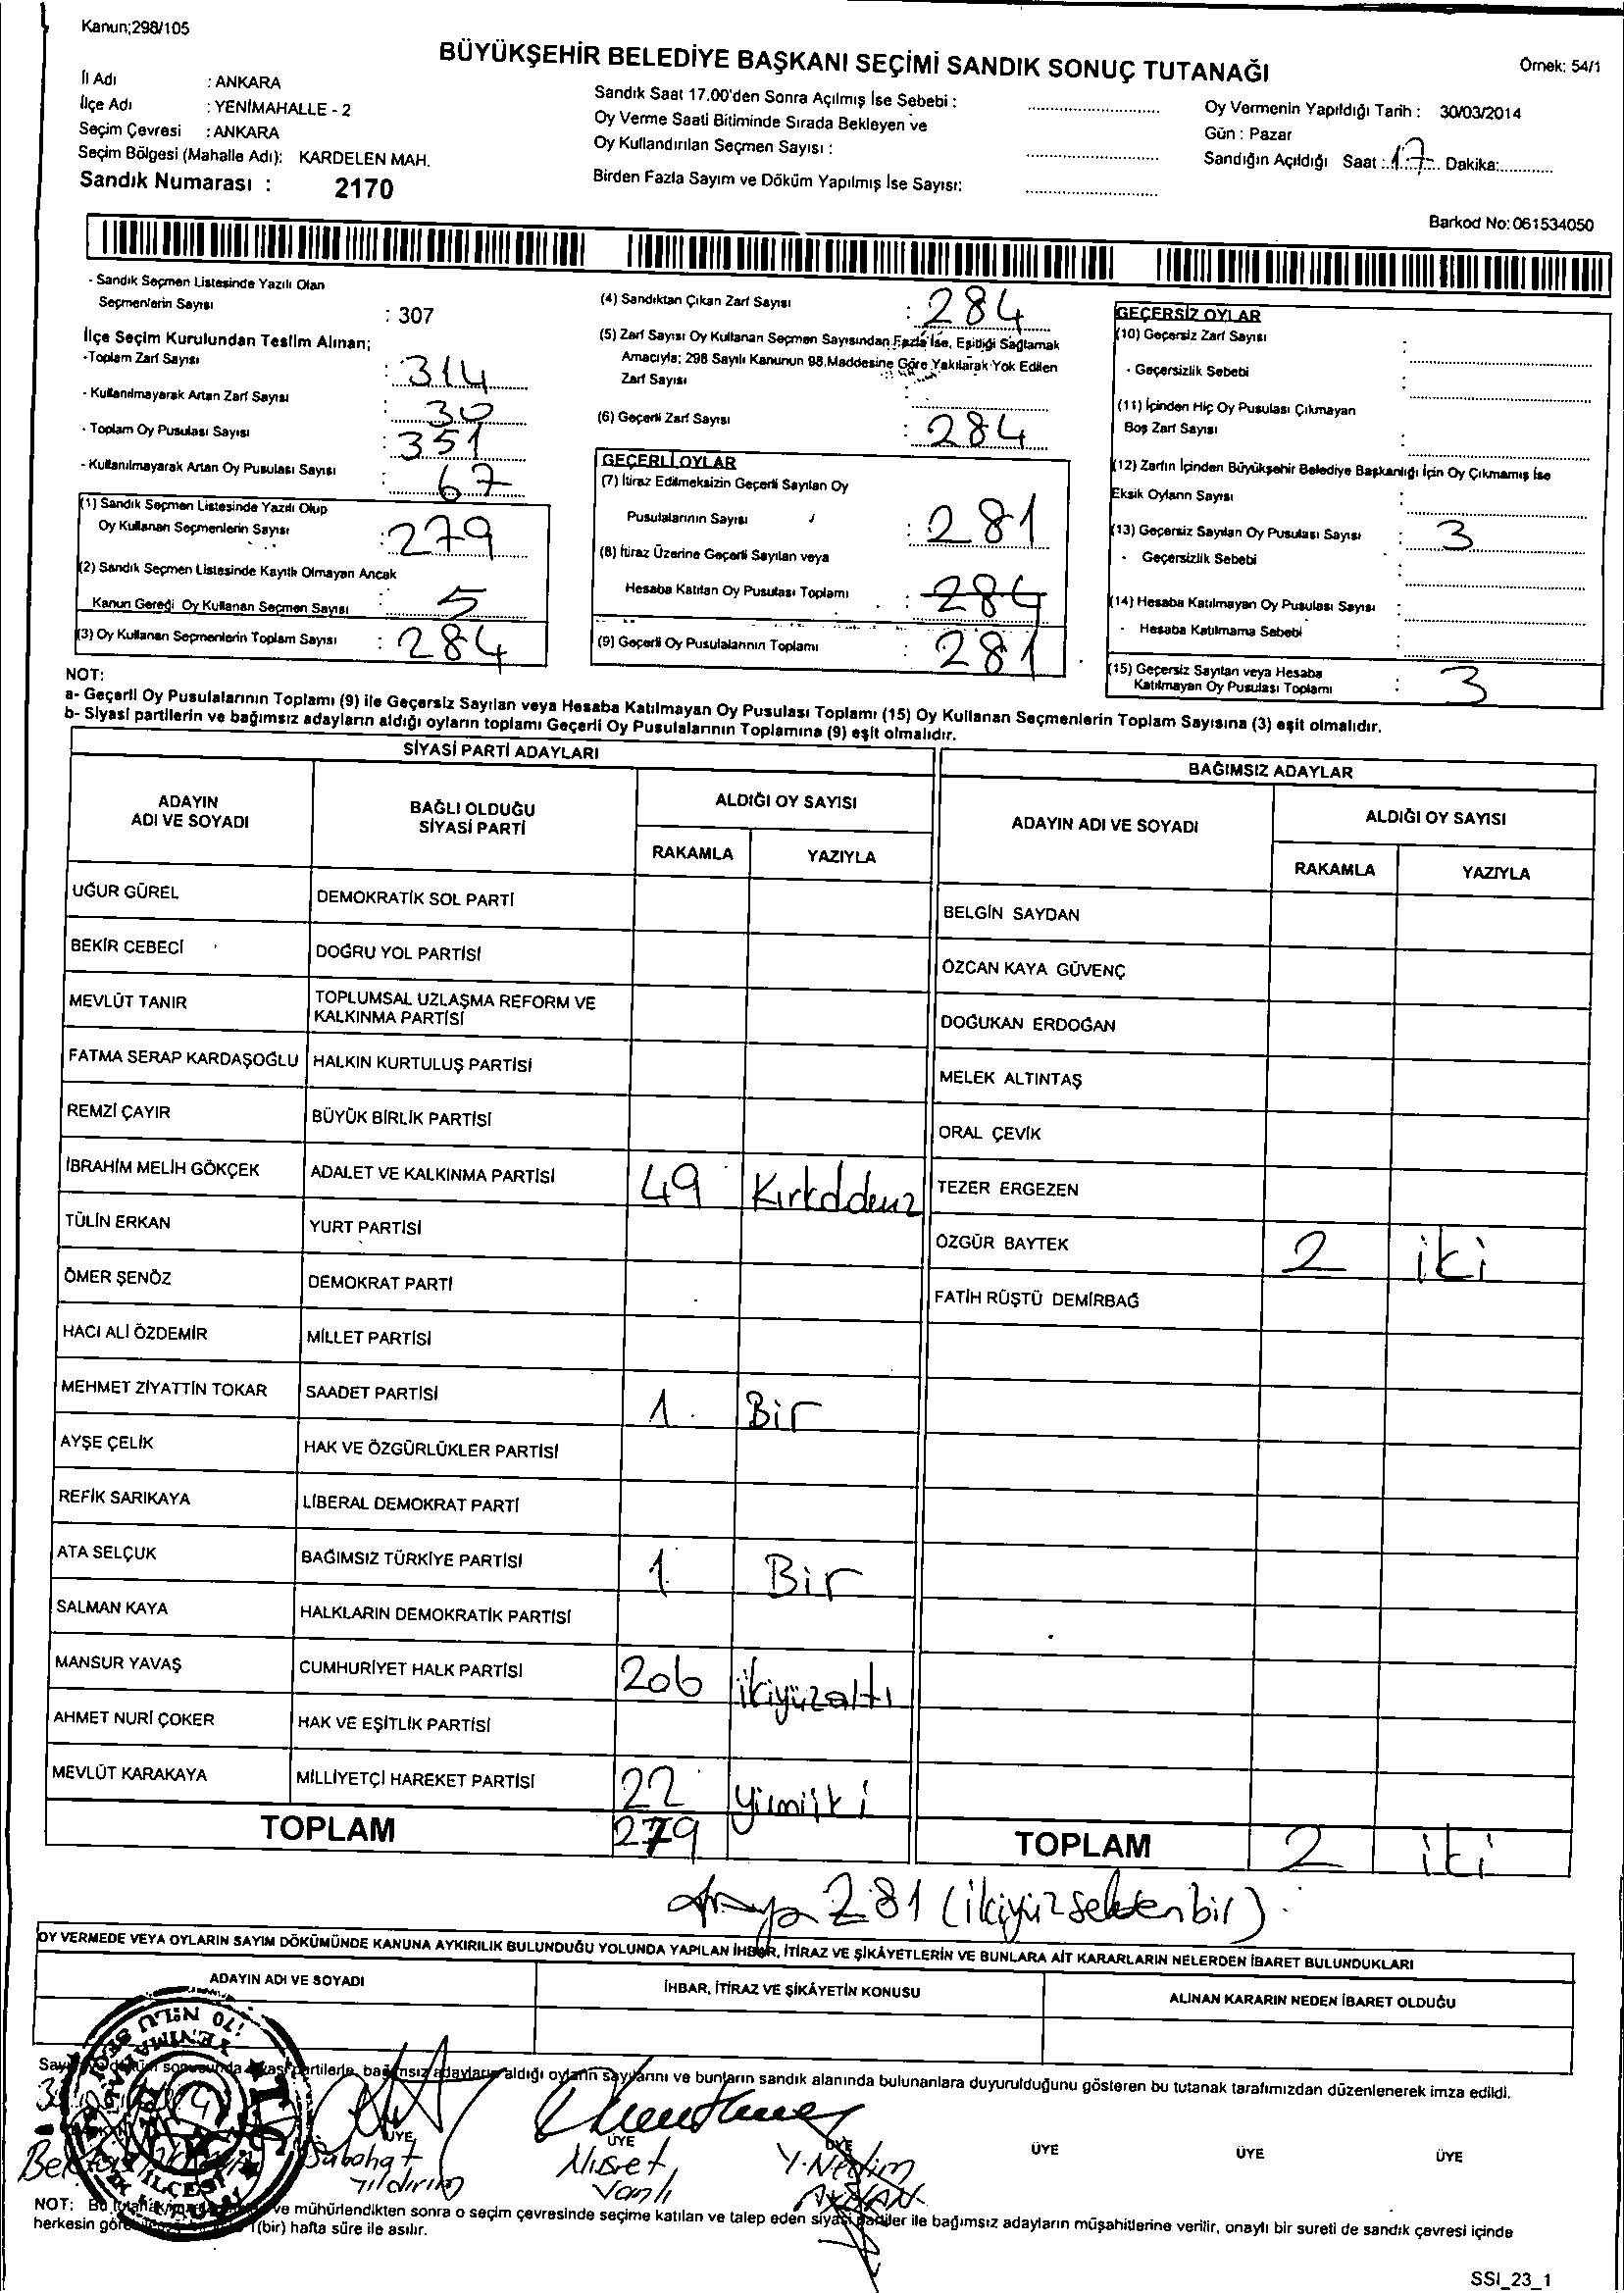 Kanun;298/105
BÜYÜKŞEHİR BELEDİYE BAŞKANI SEÇİMİ SANDIK SONUÇ TUTANAĞI
Örnek: 54/1
İl Adı : ANKARA
İlçe Adı : YENİMAHALLE - 2
Seçim Çevresi : ANKARA
Seçim Bölgesi (Mahalle Adı): KARDELEN MAH.
Sandık Numarası : 2170
Sandık Saat 17.00'den Sonra Açılmış İse Sebebi :
Oy Verme Saati Bitiminde Sırada Bekleyen ve
Oy Kullandırılan Seçmen Sayısı :
Birden Fazla Sayım ve Döküm Yapılmış İse Sayısı:
Oy Vermenin Yapıldığı Tarih : 30/03/2014
Gün : Pazar
Sandığın Açıldığı Saat : 17 Dakika:
Barkod No: 061534050
- Sandık Seçmen Listesinde Yazılı Olan
Seçmenlerin Sayısı : 307
İlçe Seçim Kurulundan Teslim Alınan;
-Toplam Zarf Sayısı : 314
- Kullanılmayarak Artan Zarf Sayısı : 30
- Toplam Oy Pusulası Sayısı : 351
- Kullanılmayarak Artan Oy Pusulası Sayısı : 67
(1) Sandık Seçmen Listesinde Yazılı Olup
Oy Kullanan Seçmenlerin Sayısı : 279
(2) Sandık Seçmen Listesinde Kayıtlı Olmayan Ancak
Kanun Gereği Oy Kullanan Seçmen Sayısı : 5
(3) Oy Kullanan Seçmenlerin Toplam Sayısı : 284
(4) Sandıktan Çıkan Zarf Sayısı : 284
(5) Zarf Sayısı Oy Kullanan Seçmen Sayısından Fazla İse, Eşitliği Sağlamak
Amacıyla; 298 Sayılı Kanunun 98.Maddesine Göre Yakılarak Yok Edilen
Zarf Sayısı :
(6) Geçerli Zarf Sayısı : 284
GEÇERLİ OYLAR
(7) İtiraz Edilmeksizin Geçerli Sayılan Oy
Pusulalarının Sayısı : 281
(8) İtiraz Üzerine Geçerli Sayılan veya
Hesaba Katılan Oy Pusulası Toplamı : 284
(9) Geçerli Oy Pusulalarının Toplamı : 281
GEÇERSİZ OYLAR
(10) Geçersiz Zarf Sayısı :
- Geçersizlik Sebebi :
(11) İçinden Hiç Oy Pusulası Çıkmayan
Boş Zarf Sayısı :
(12) Zarfın İçinden Büyükşehir Belediye Başkanlığı İçin Oy Çıkmamış İse
Eksik Oyların Sayısı :
(13) Geçersiz Sayılan Oy Pusulası Sayısı : 3
- Geçersizlik Sebebi :
(14) Hesaba Katılmayan Oy Pusulası Sayısı :
- Hesaba Katılmama Sebebi :
(15) Geçersiz Sayılan veya Hesaba
Katılmayan Oy Pusulası Toplamı : 3
NOT:
a- Geçerli Oy Pusulalarının Toplamı (9) ile Geçersiz Sayılan veya Hesaba Katılmayan Oy Pusulası Toplamı (15) Oy Kullanan Seçmenlerin Toplam Sayısına (3) eşit olmalıdır.
b- Siyasi partilerin ve bağımsız adayların aldığı oyların toplamı Geçerli Oy Pusulalarının Toplamına (9) eşit olmalıdır.
SİYASİ PARTİ ADAYLARI
ADAYIN ADI VE SOYADI
BAĞLI OLDUĞU SİYASİ PARTİ
ALDIĞI OY SAYISI
RAKAMLA YAZIYLA
UĞUR GÜREL DEMOKRATİK SOL PARTİ
BEKİR CEBECİ DOĞRU YOL PARTİSİ
MEVLÜT TANIR TOPLUMSAL UZLAŞMA REFORM VE
KALKINMA PARTİSİ
FATMA SERAP KARDAŞOĞLU HALKIN KURTULUŞ PARTİSİ
REMZİ ÇAYIR BÜYÜK BİRLİK PARTİSİ
İBRAHİM MELİH GÖKÇEK ADALET VE KALKINMA PARTİSİ 49
TÜLİN ERKAN YURT PARTİSİ
ÖMER ŞENÖZ DEMOKRAT PARTİ
HACI ALİ ÖZDEMİR MİLLET PARTİSİ
MEHMET ZİYATTİN TOKAR SAADET PARTİSİ 1 Bir
AYŞE ÇELİK HAK VE ÖZGÜRLÜKLER PARTİSİ
REFİK SARIKAYA LİBERAL DEMOKRAT PARTİ
ATA SELÇUK BAĞIMSIZ TÜRKİYE PARTİSİ 1 Bir
SALMAN KAYA HALKLARIN DEMOKRATİK PARTİSİ
MANSUR YAVAŞ CUMHURİYET HALK PARTİSİ 206 ikiyüzaltı
AHMET NURİ ÇOKER HAK VE EŞİTLİK PARTİSİ
MEVLÜT KARAKAYA MİLLİYETÇİ HAREKET PARTİSİ 22
TOPLAM 279
BAĞIMSIZ ADAYLAR
ADAYIN ADI VE SOYADI
ALDIĞI OY SAYISI
RAKAMLA YAZIYLA
BELGİN SAYDAN
ÖZCAN KAYA GÜVENÇ
DOĞUKAN ERDOĞAN
MELEK ALTINTAŞ
ORAL ÇEVİK
TEZER ERGEZEN
ÖZGÜR BAYTEK 2 iki
FATİH RÜŞTÜ DEMİRBAĞ
TOPLAM 2 iki
281
OY VERMEDE VEYA OYLARIN SAYIM DÖKÜMÜNDE KANUNA AYKIRILIK BULUNDUĞU YOLUNDA YAPILAN İHBAR, İTİRAZ VE ŞİKÂYETLERİN VE BUNLARA AİT KARARLARIN NELERDEN İBARET BULUNDUKLARI
ADAYIN ADI VE SOYADI İHBAR, İTİRAZ VE ŞİKÂYETİN KONUSU ALINAN KARARIN NEDEN İBARET OLDUĞU
bağımsız adayların aldığı oyların sayılarını ve bunların sandık alanında bulunanlara duyurulduğunu gösteren bu tutanak tarafımızdan düzenlenerek imza edildi.
ÜYE ÜYE ÜYE ÜYE ÜYE ÜYE
Sabahat Yıldırım
Nusret Vanlı
NOT: Bu ve mühürlendikten sonra o seçim çevresinde seçime katılan ve talep eden siyasi partiler ile bağımsız adayların müşahitlerine verilir, onaylı bir sureti de sandık çevresi içinde
herkesin (bir) hafta süre ile asılır.
SSI_23_1